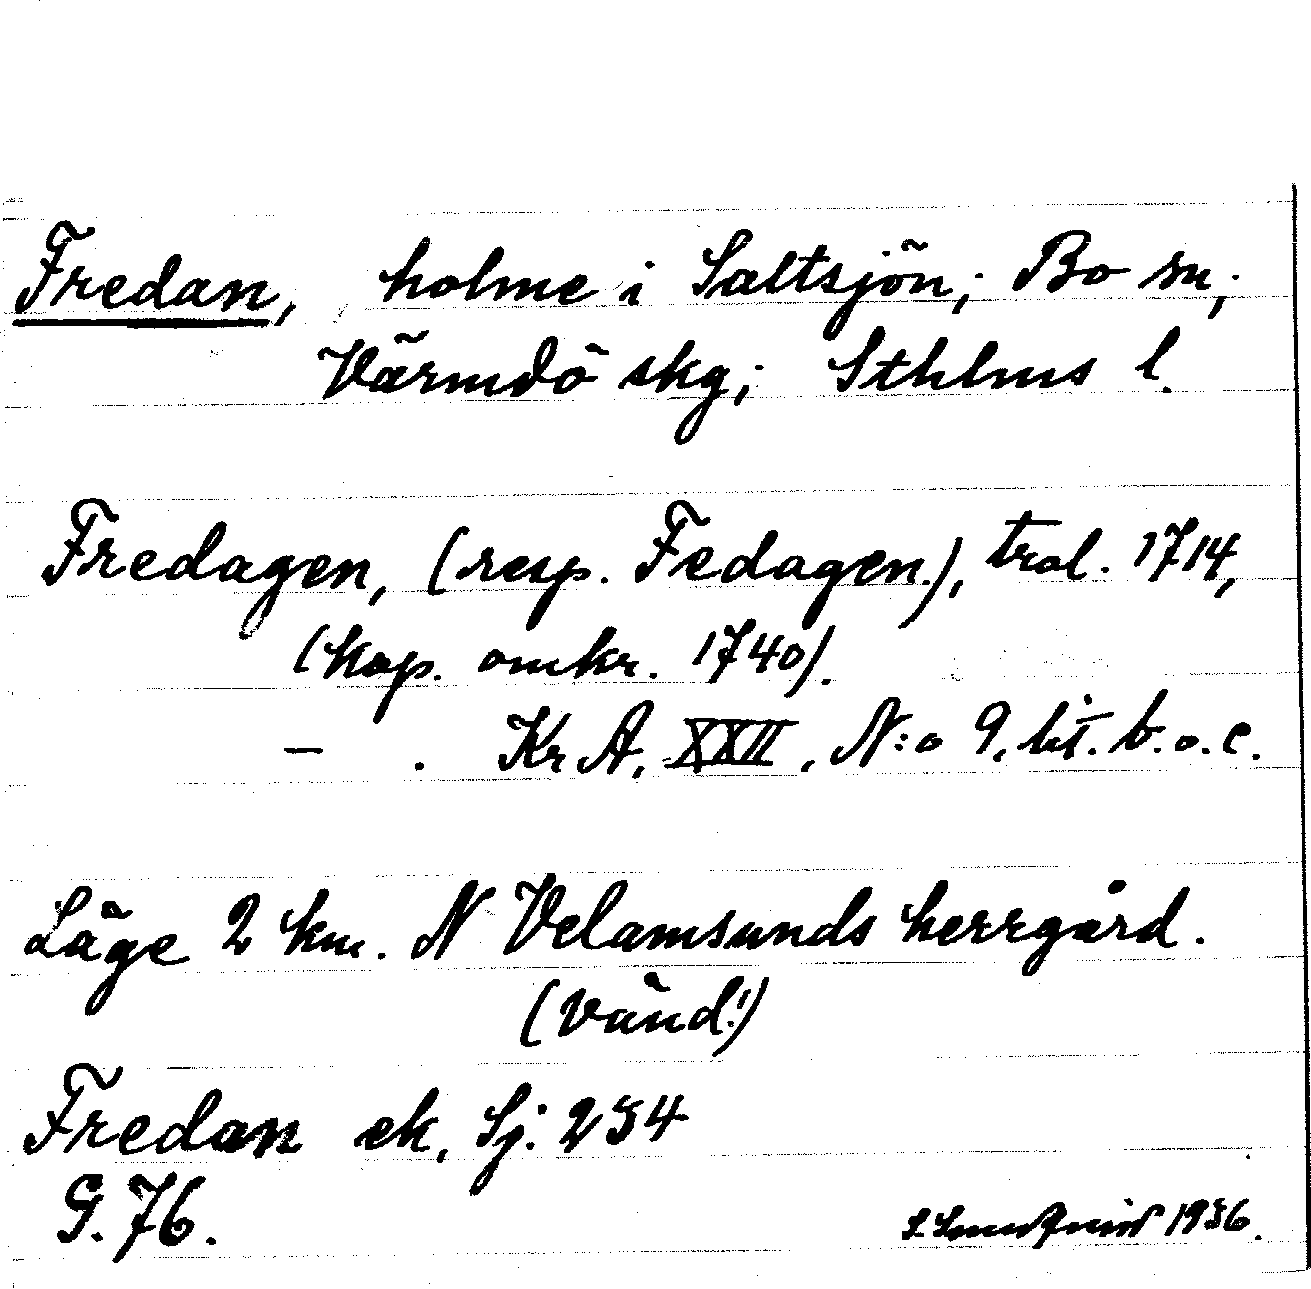 Fredan, holme i Saltsjön; Bo sn,
Värmdö skg; Sthlms l.
Fredagen, (resp. Fedagen.), trol. 1714,
(kop. omkr. 1740).
— . KrA, XXII, N:o 9. lit. b. o. c.
Läge 2 km. N Velamsunds herrgård.
(Vänd!)
Fredan ek, Sj: 234
G. 76.
1936.